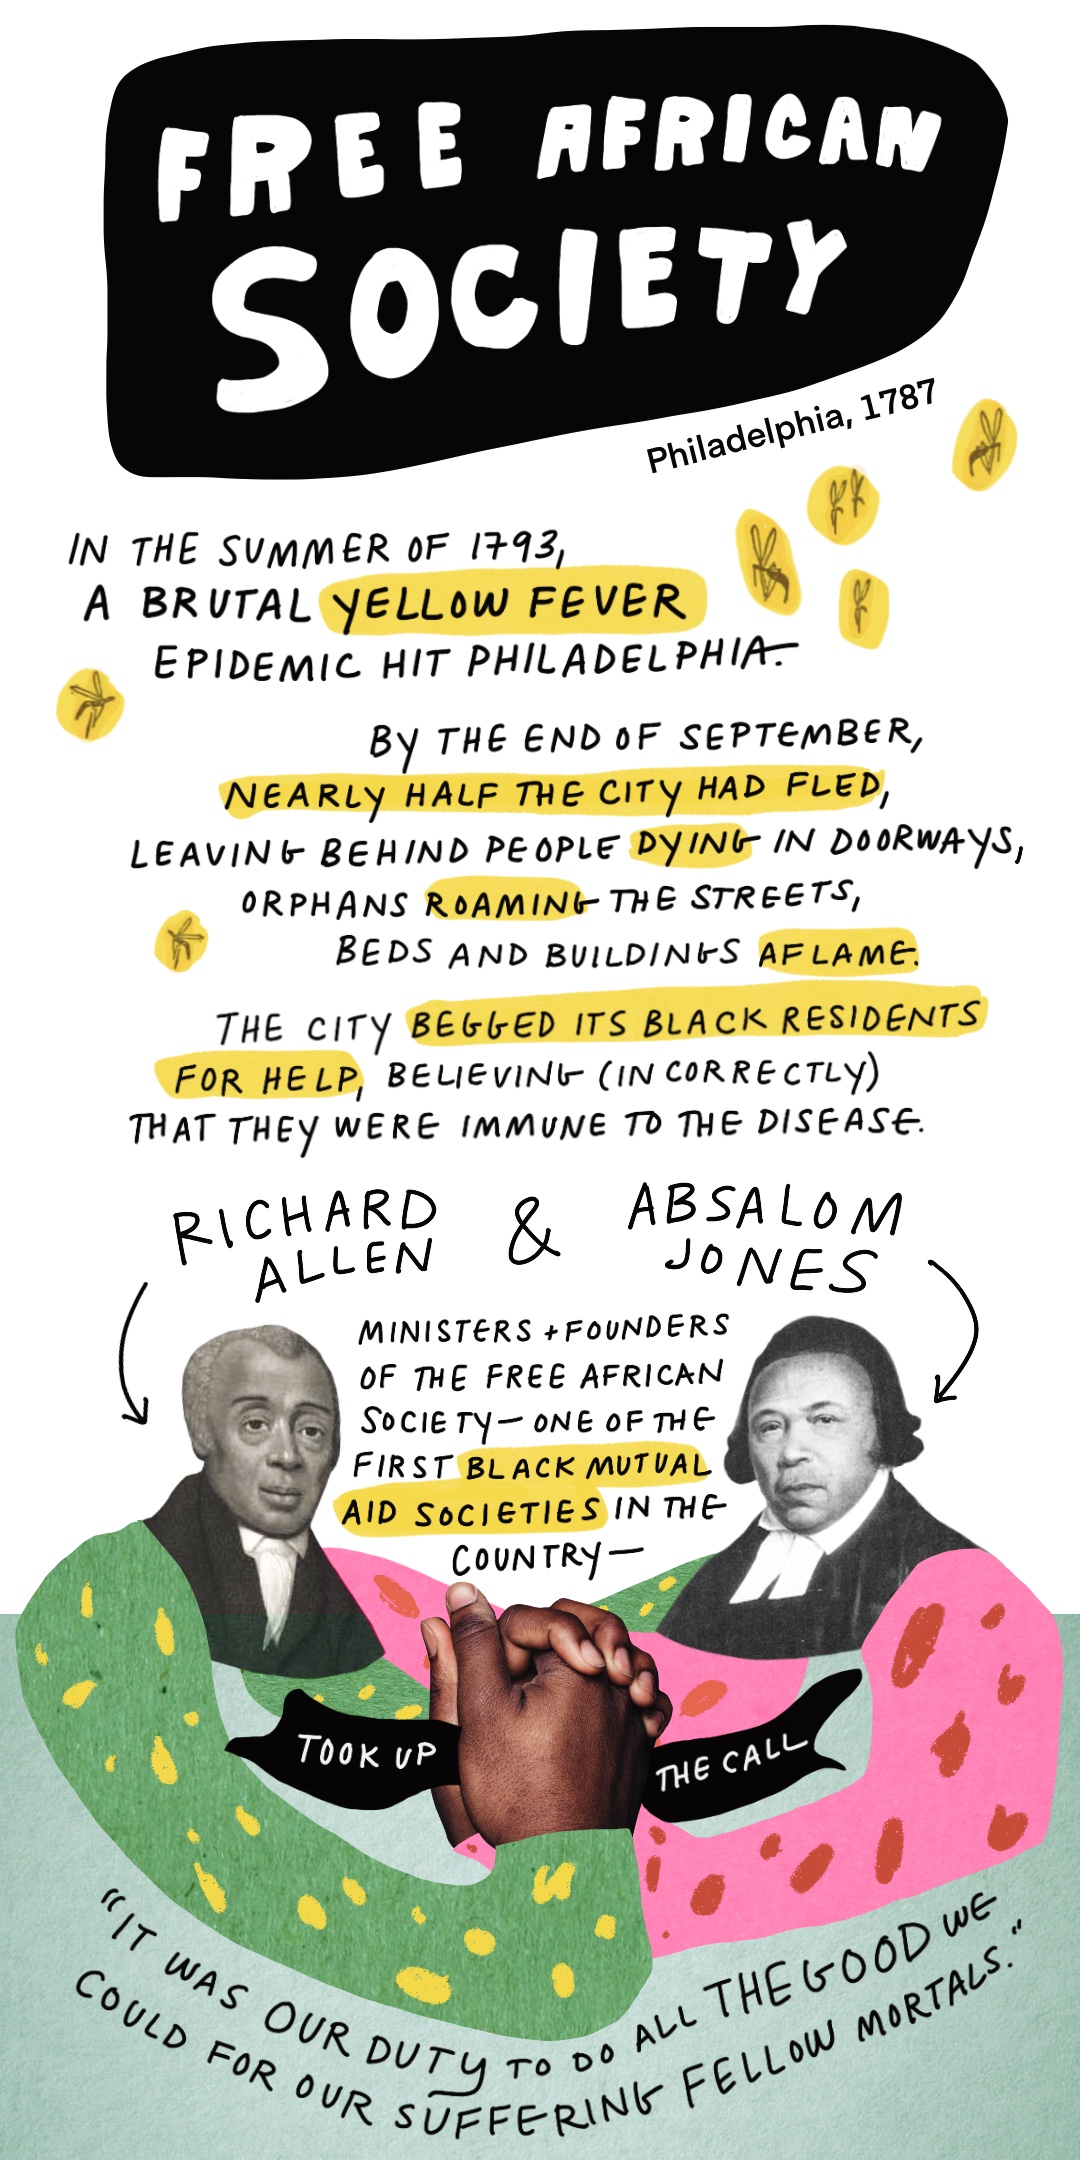 FREE AFRICAN
SOCIETY
Philadelphia, 1787
IN THE SUMMER OF 1793,
A BRUTAL YELLOW FEVER
EPIDEMIC HIT PHILADELPHIA.
BY THE END OF SEPTEMBER,
NEARLY HALF THE CITY HAD FLED,
LEAVING BEHIND PEOPLE DYING IN DOORWAYS,
ORPHANS ROAMING THE STREETS,
BEDS AND BUILDINGS AFLAME.
THE CITY BEGGED ITS BLACK RESIDENTS
FOR HELP, BELIEVING (INCORRECTLY)
THAT THEY WERE IMMUNE TO THE DISEASE.
RICHARD ALLEN & ABSALOM JONES
MINISTERS + FOUNDERS
OF THE FREE AFRICAN
SOCIETY — ONE OF THE
FIRST BLACK MUTUAL
AID SOCIETIES IN THE
COUNTRY —
TOOK UP THE CALL
"IT WAS OUR DUTY TO DO ALL THE GOOD WE
COULD FOR OUR SUFFERING FELLOW MORTALS."